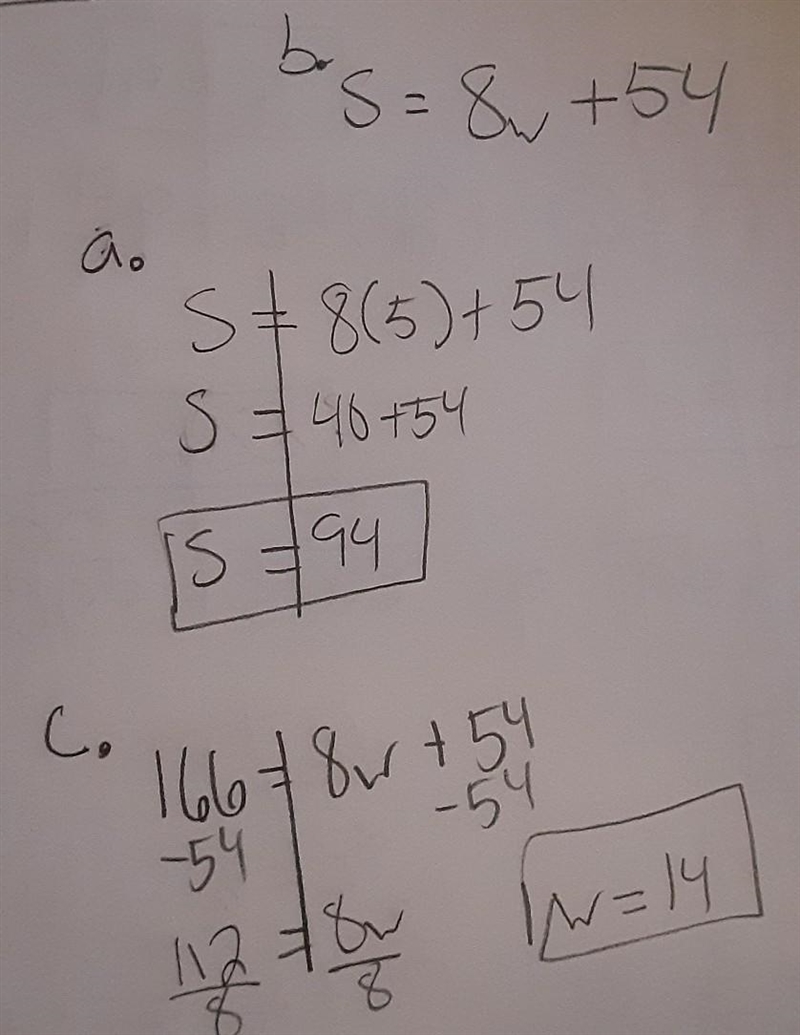 b. S = 8w + 54
a.
S = 8(5) + 54
S = 40 + 54
S = 94
c.
166 = 8w + 54
-54 -54
112/8 = 8w/8
w = 14